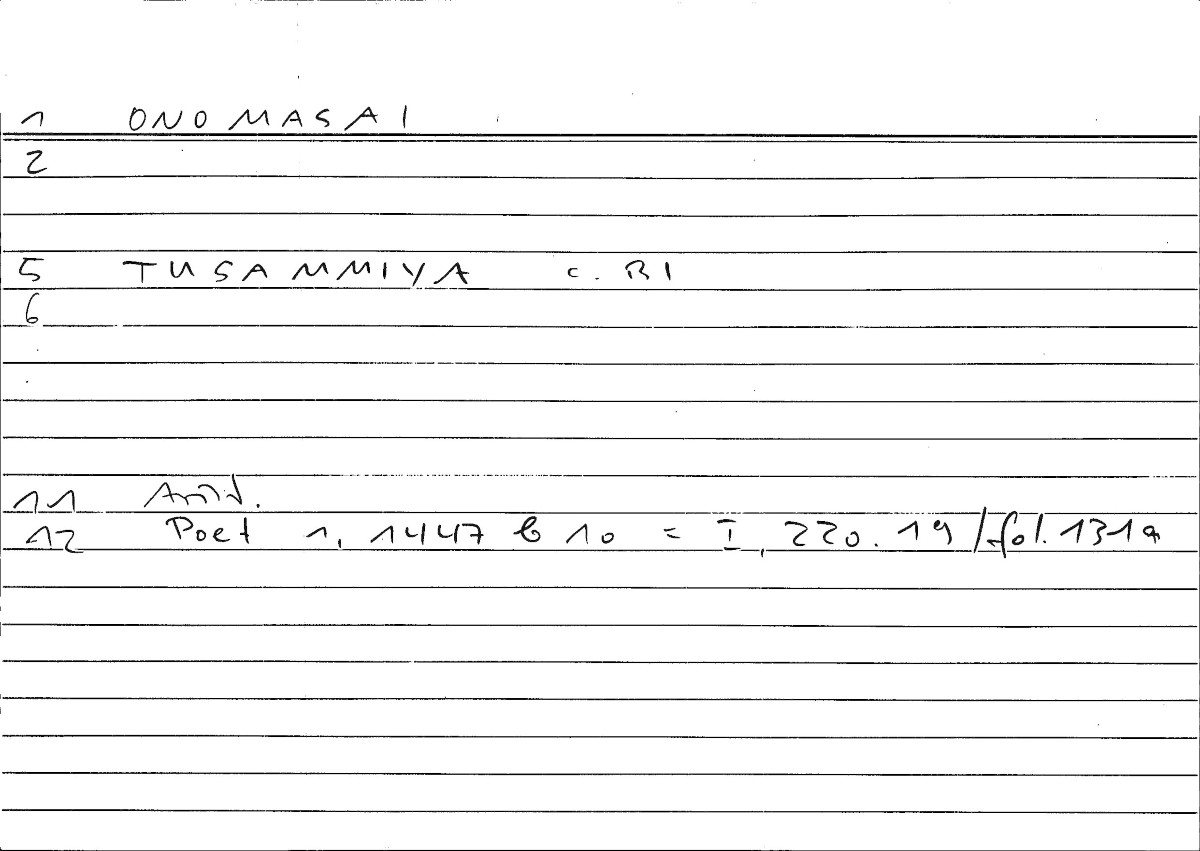 1 ONOMASAI
2
5 TUSAMMIYA c. BI
6
11 Arist.
12 Poet 1, 1447 b 10 = I, 220.19/fol. 131a